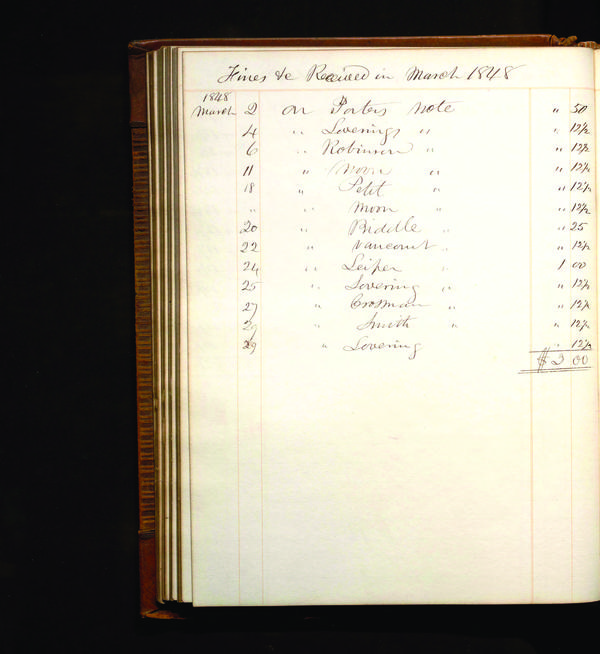 Fines &c Received in March 1848
1848
March 2 on Porters Note " 50
4 " Loverings " " 12½
6 " Robinson " " 12½
11 " Moon " " 12½
18 " Petit " " 12½
" " Moon " " 12½
20 " Biddle " " 25
22 " Vancourt " " 12½
24 " Leiper " 1 00
25 " Lovering " " 12½
27 " Crosman " " 12½
29 " Smith " " 12½
29 " Lovering " 12½
$ 3 00